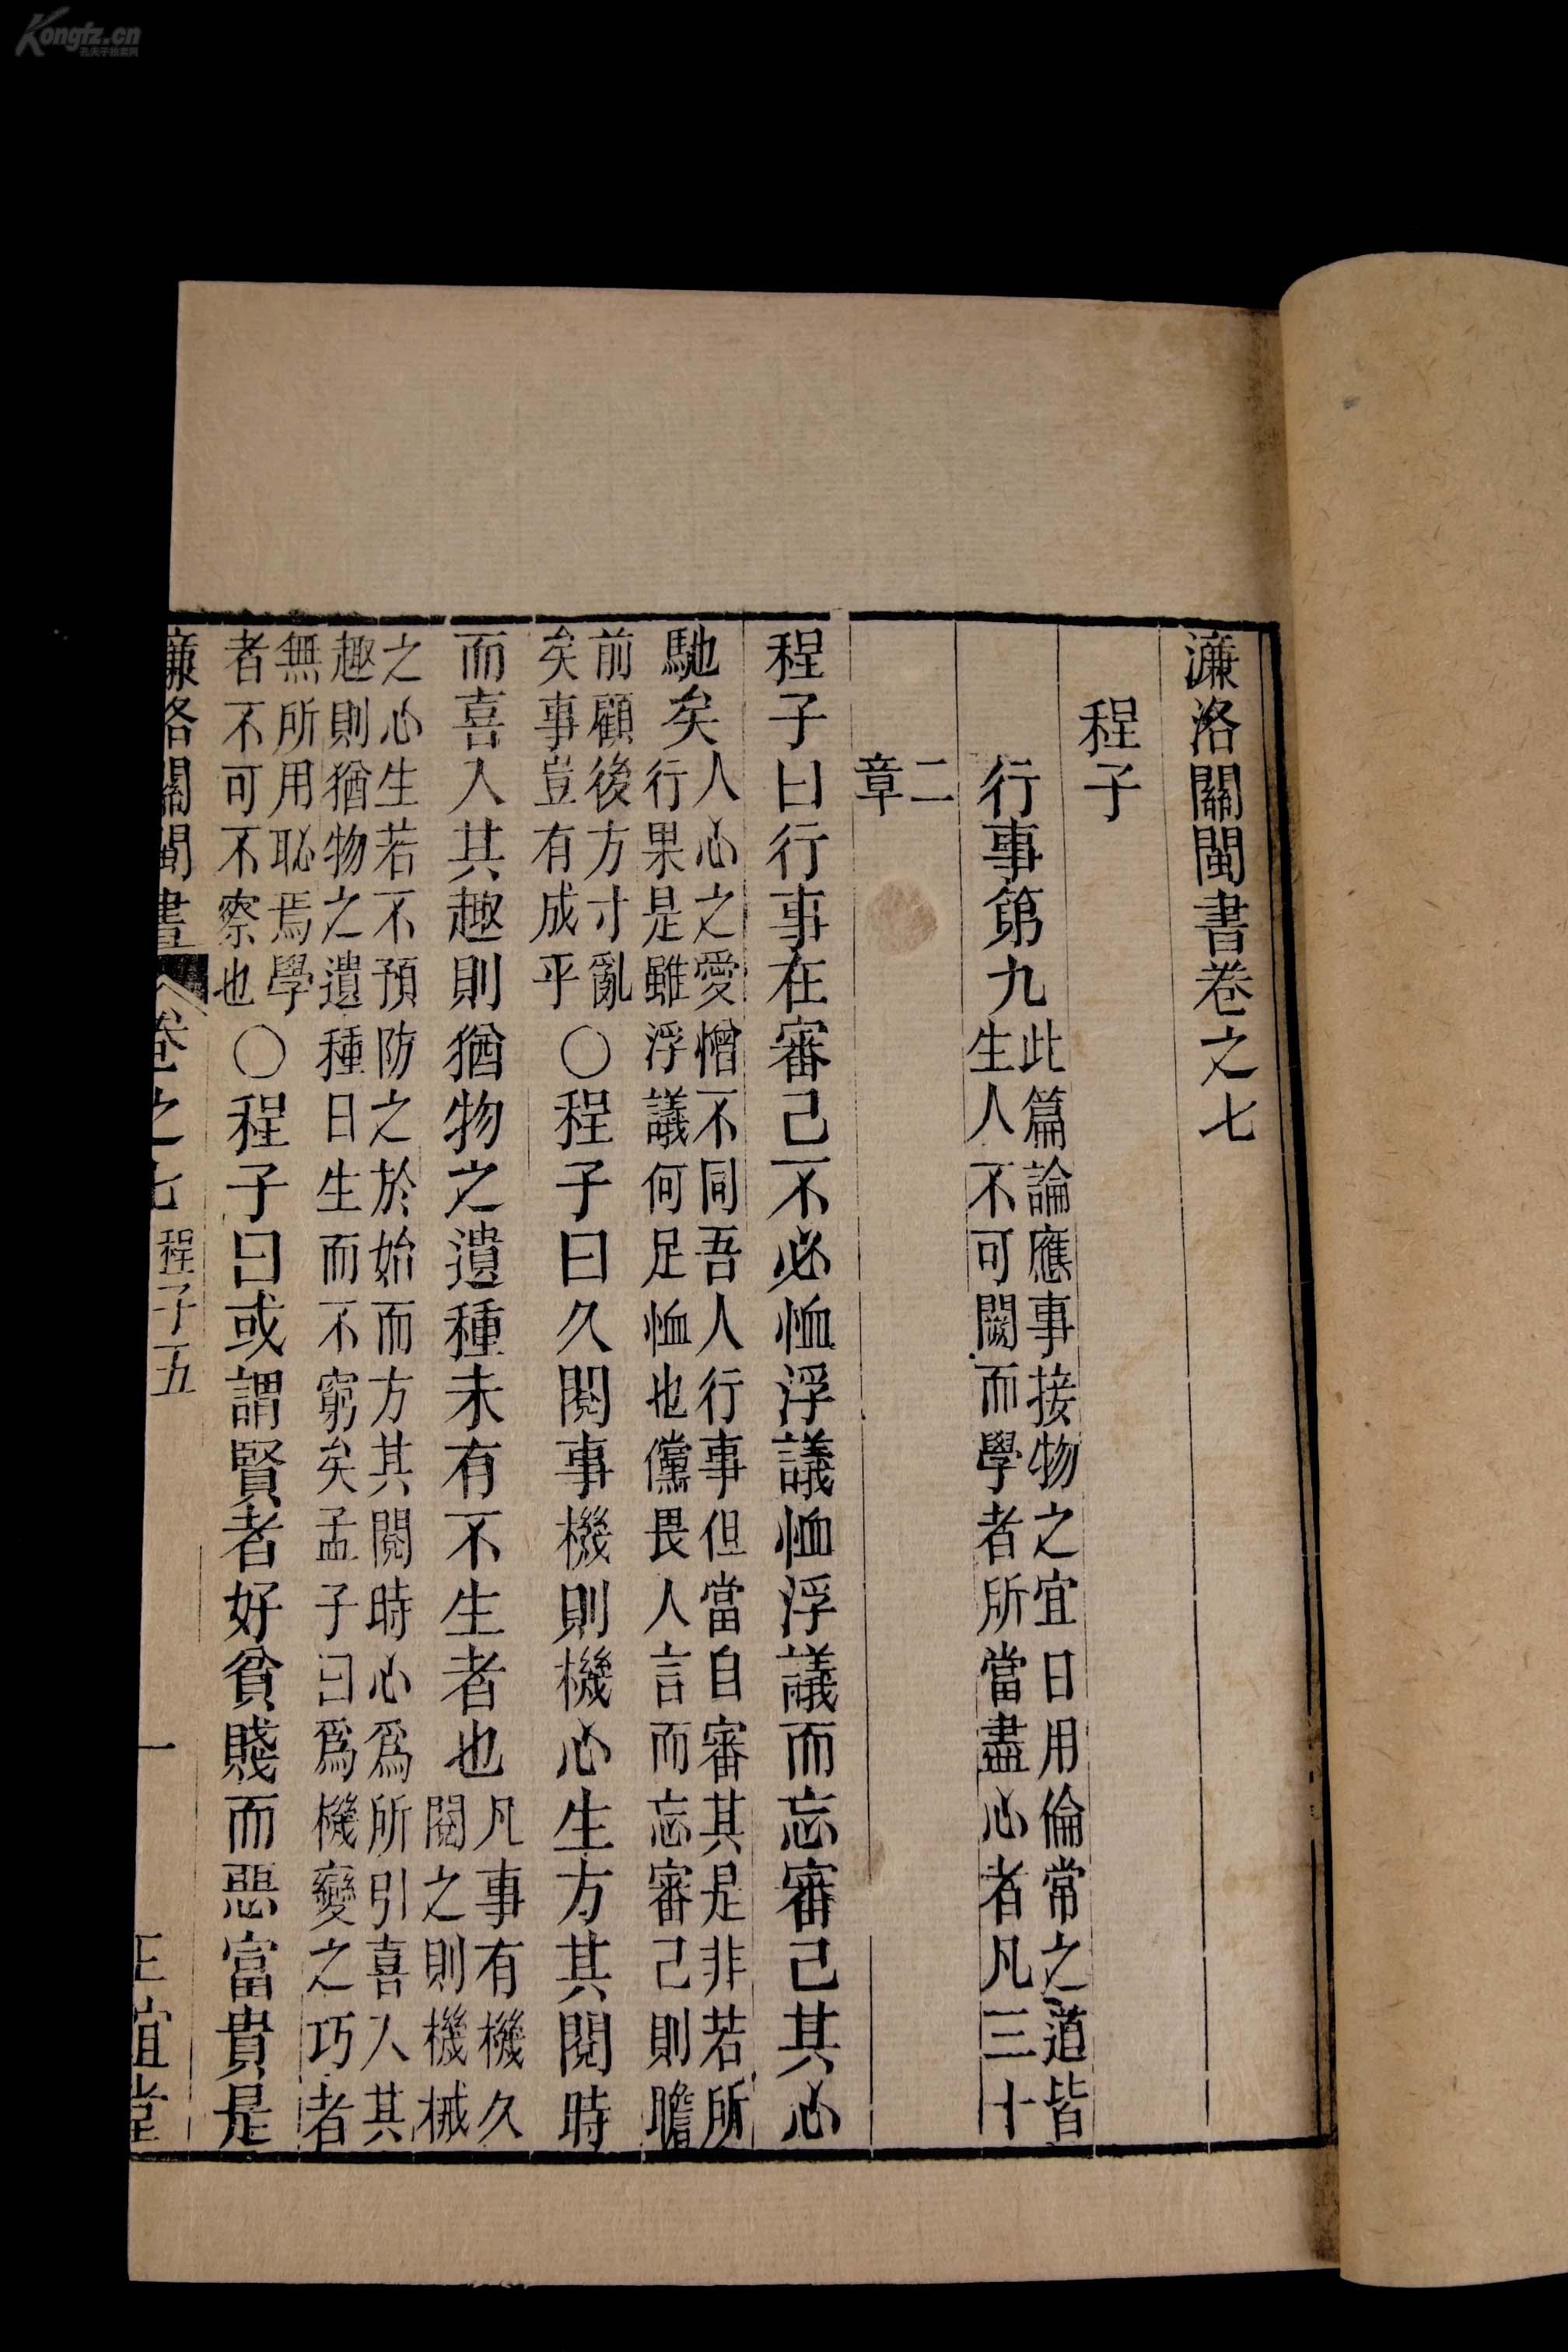 Kongfz.cn
孔夫子旧书网
濂洛關閩書卷之七
程子
行事第九
此篇論應事接物之宜日用倫常之道皆
生人不可闕而學者所當盡心者凡三十
二
章
程子曰行事在審己不必恤浮議恤浮議而忘審己其心
馳矣
人心之愛憎不同吾人行事但當自審其是非若所
行果是雖浮議何足恤也儻畏人言而忘審己則瞻
前顧後方寸亂
矣事豈有成乎
○程子曰久閱事機則機心生方其閱時
而喜入其趣則猶物之遺種未有不生者也
凡事有機久
閱之則機械
之心生若不預防之於始而方其閱時心爲所引喜入其
趣則猶物之遺種日生而不窮矣孟子曰爲機變之巧者
無所用恥焉學
者不可不察也
○程子曰或謂賢者好貧賤而惡富貴是
濂洛關閩書
卷之七
程子五
一
正誼堂